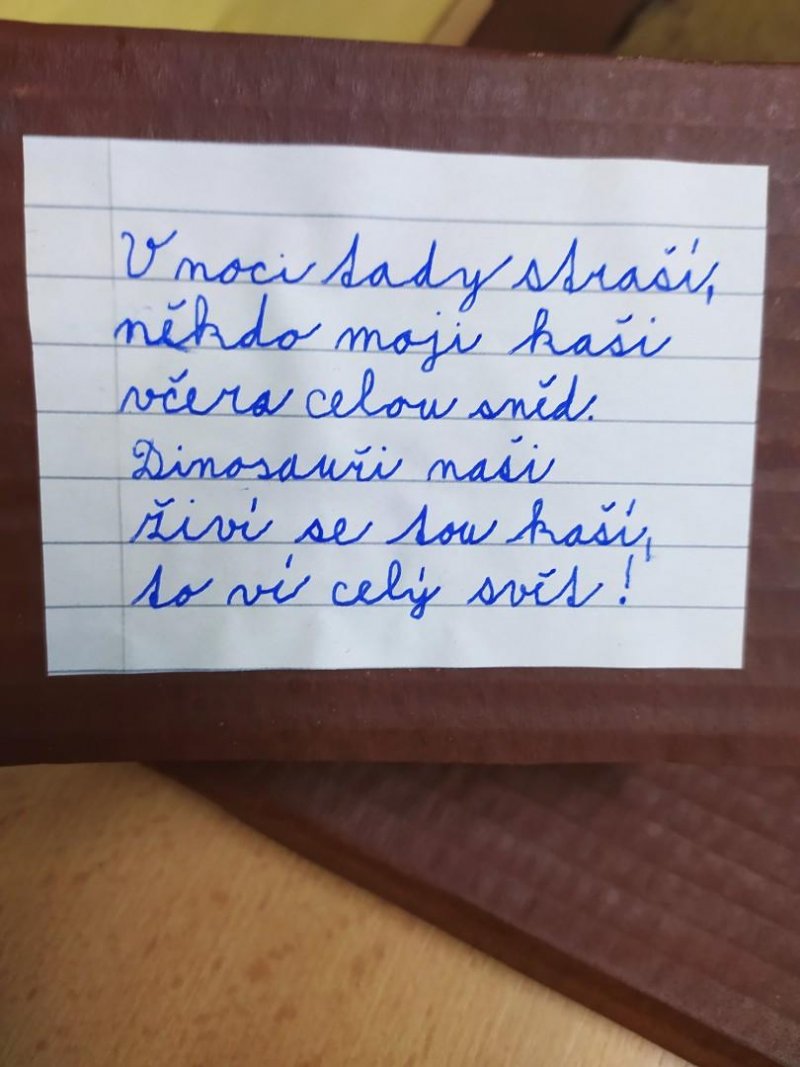 V noci tady straší,
někdo moji kaši
včera celou sněd.
Dinosauři naši
živí se tou kaší,
to ví celý svět!